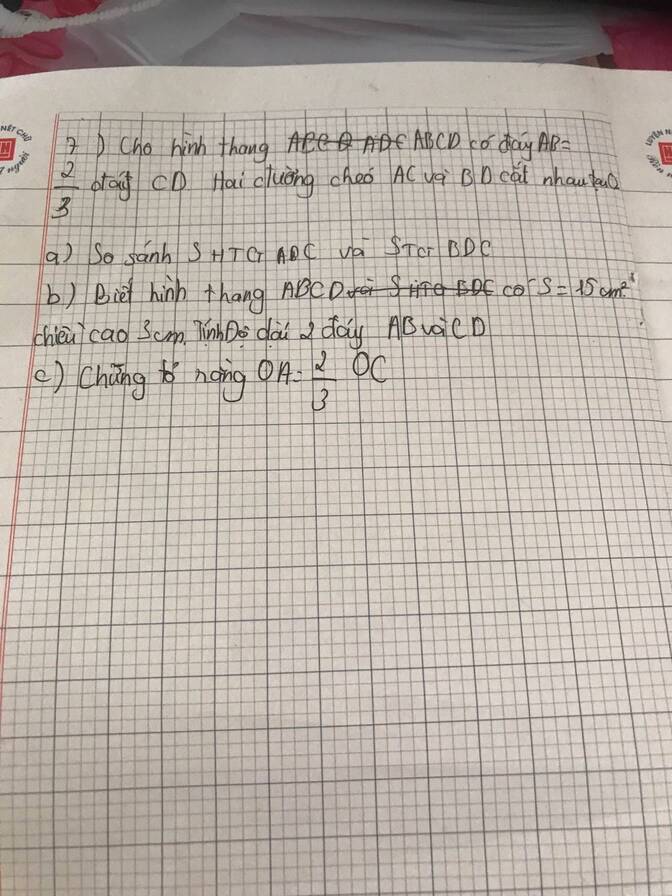 7) Cho hình thang ABCD có đáy AB=
2/3 đáy CD Hai đường chéo AC và BD cắt nhau tại O
a) So sánh S HTG ADC và STG BDC
b) Biết hình thang ABCD và S HTG BDC có S = 15cm²
chiều cao 3cm. Tính Độ dài 2 đáy AB và CD
c) Chứng tỏ rằng OA = 2/3 OC